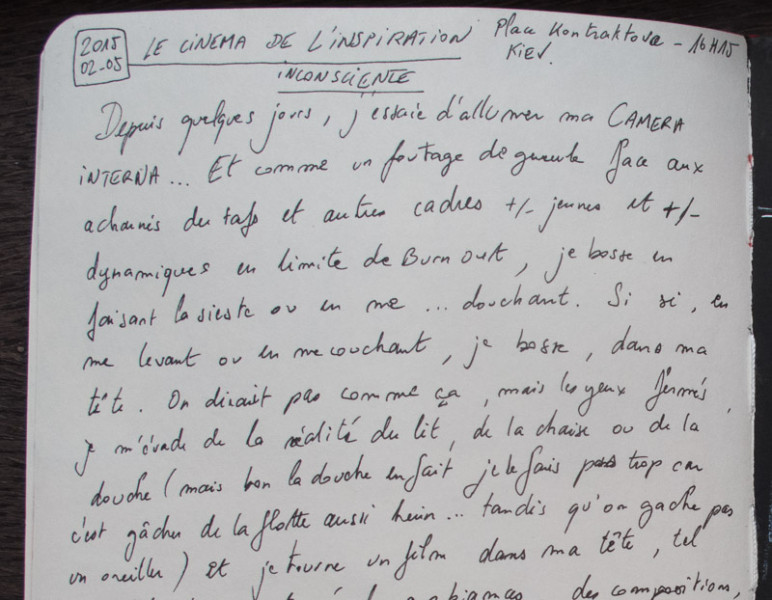 2015 LE CINEMA DE L'INSPIRATION Place Kontraktova - 16H15
02-05 KIEV.
INCONSCIENTE
Depuis quelques jours, j'essaie d'allumer ma CAMERA
INTERNA... Et comme un foutage de gueule face aux
acharnés du taf et autres cadres +/- jeunes et +/-
dynamiques en limite de Burn out, je bosse en
faisant la sieste ou en me ... douchant. Si si, en
me levant ou en me couchant, je bosse, dans ma
tête. On dirait pas comme ça, mais les yeux fermés,
je m'évade de la réalité du lit, de la chaise ou de la
douche (mais bon la douche en fait je le fais pas trop car
c'est gâcher de la flotte aussi hein... tandis qu'on gache pas
un oreiller) et je tourne un film dans ma tête, tel
des composition,